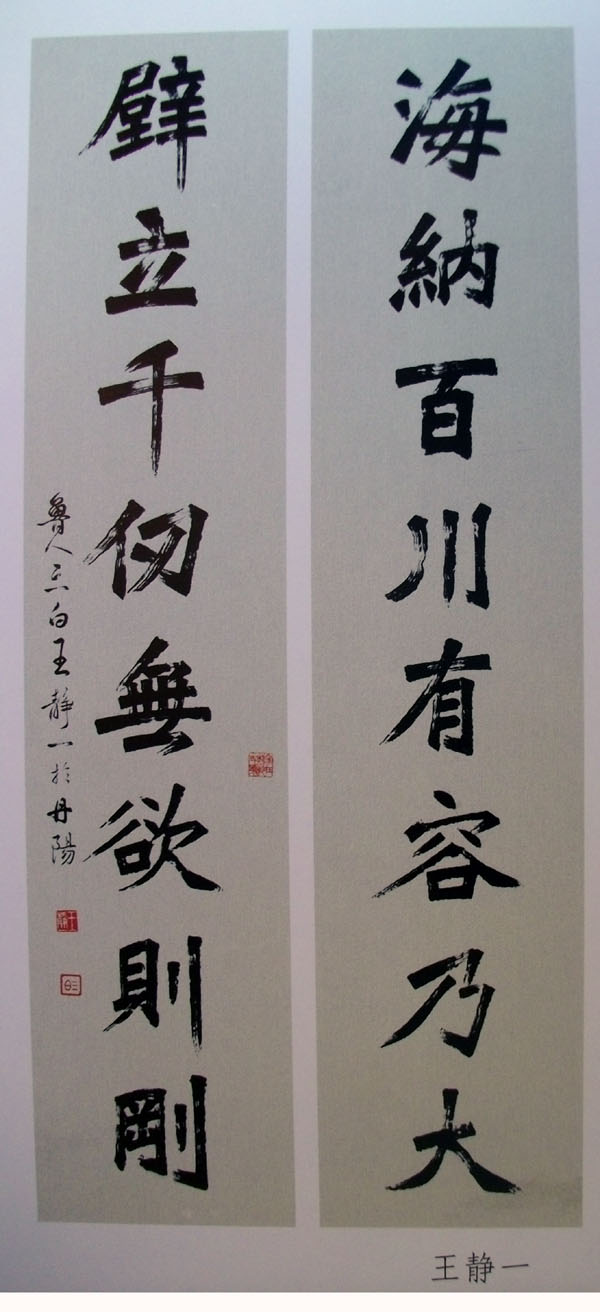 海納百川有容乃大
壁立千仞無欲則剛
魯人三白王靜一於丹陽
王静一